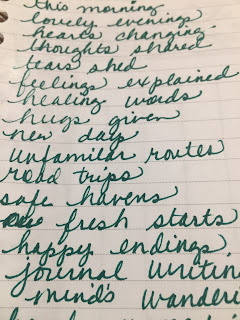 this morning
lovely evenings
hearts changing
thoughts shared
tears shed
feelings explained
healing words
hugs given
new days
unfamilar routes
road trips
safe havens
fresh starts
happy endings
journal writin
minds wanderi